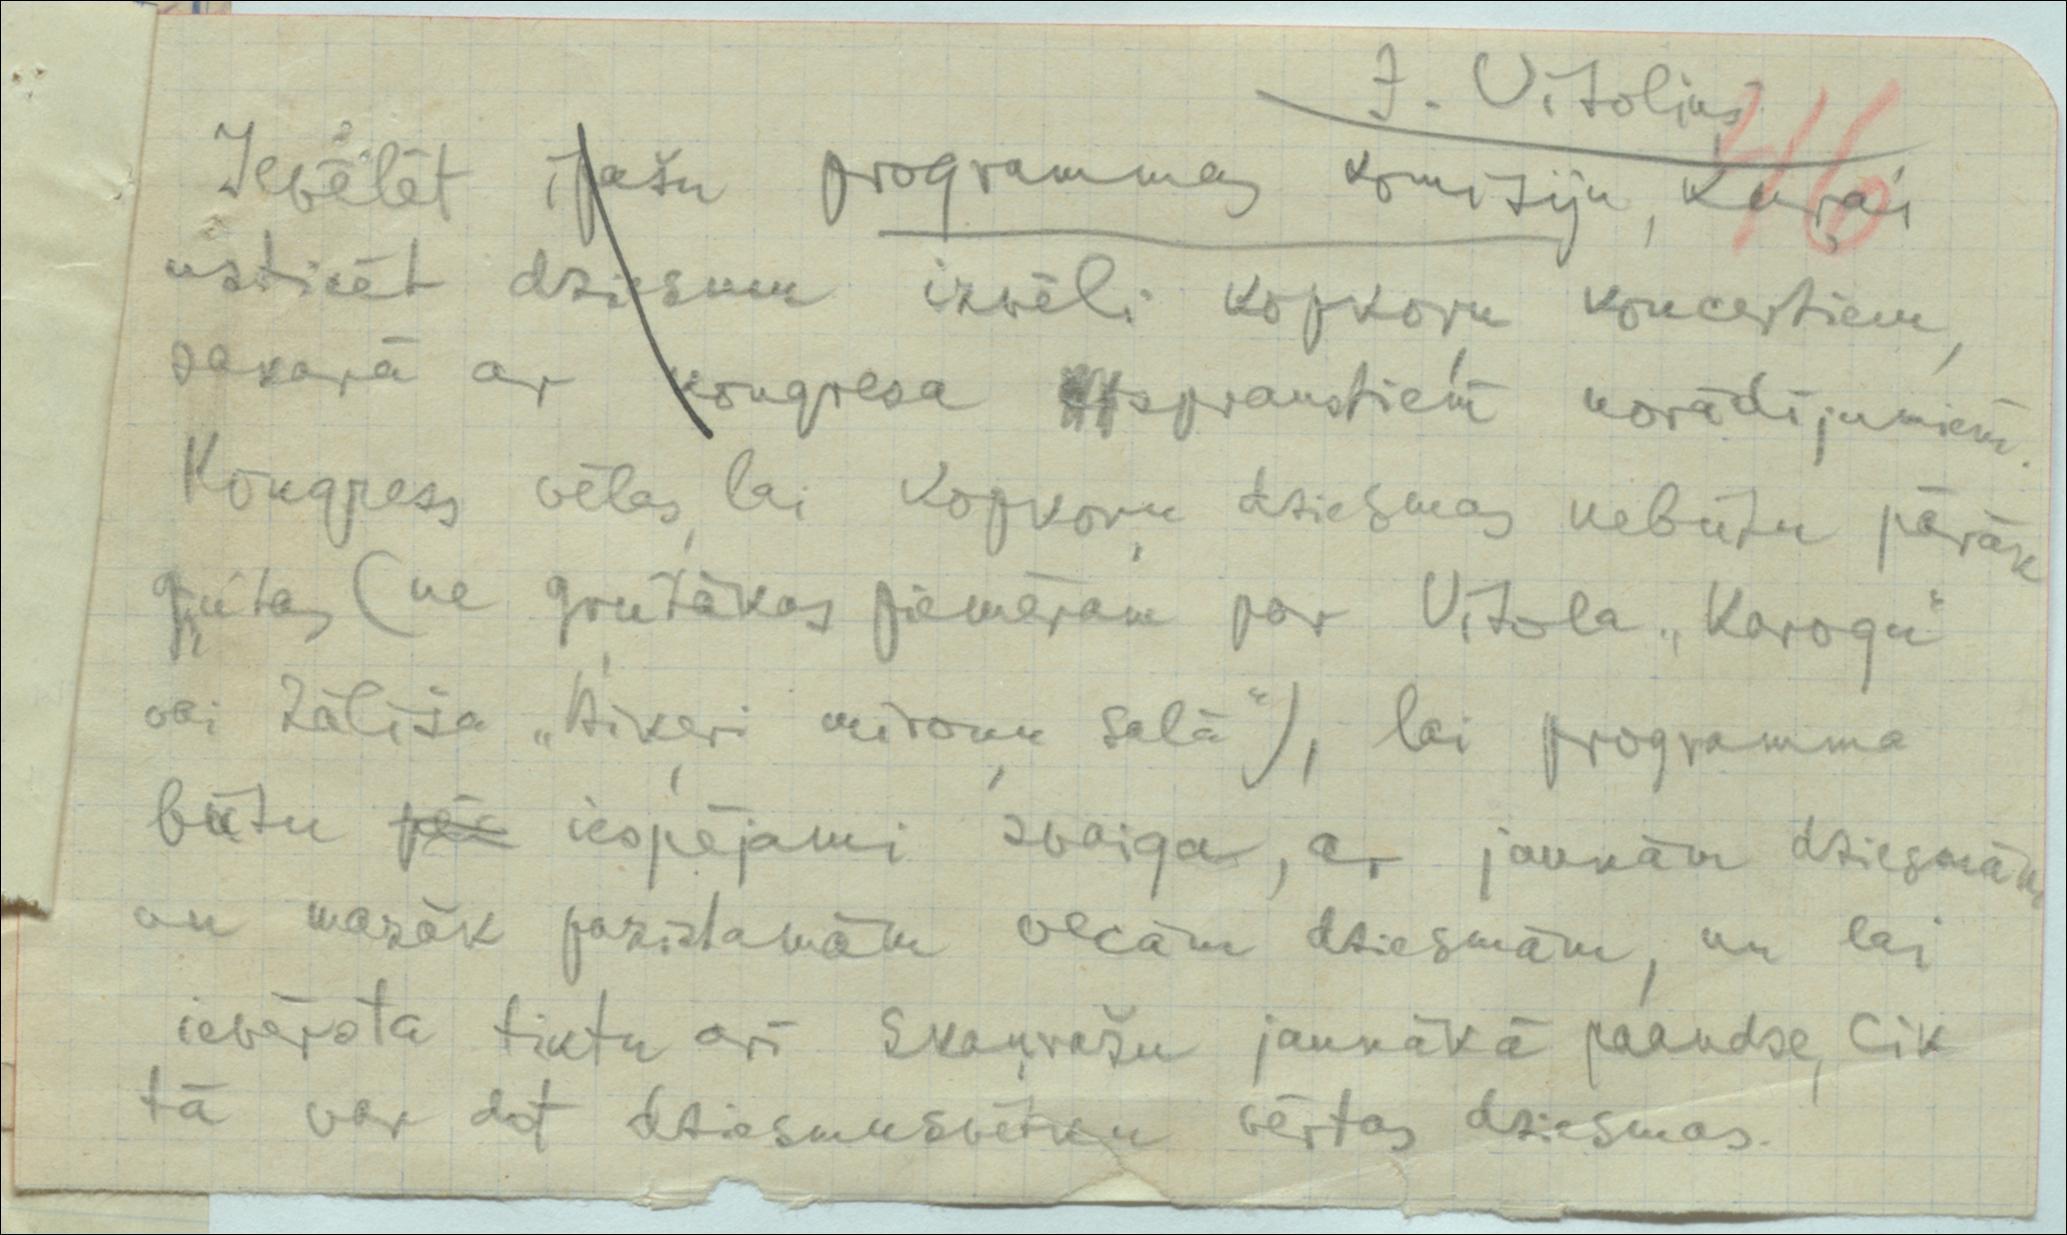 J. Vītoliņš
416
Ievēlēt īpašu programmas komisiju, kuŗai
uzticēt dziesmu izvēli kopkoŗu koncertiem,
sakarā ar kongresa spraustiem norādījumiem.
Kongress vēlas, lai kopkoŗu dziesmas nebūtu pārāk
gŗūtas (ne grūtākas piemēram par Vītola „Karogu“
vai Zālīša „Biķeri miroņu salā“), lai programma
būtu iespējami svaiga, ar jaunām dziesmām
un mazāk pazīstamām vecām dziesmām, un lai
ievērota tiktu arī skaņražu jaunākā paaudze, cik
tā var dot dziesmusvētku vērtas dziesmas.